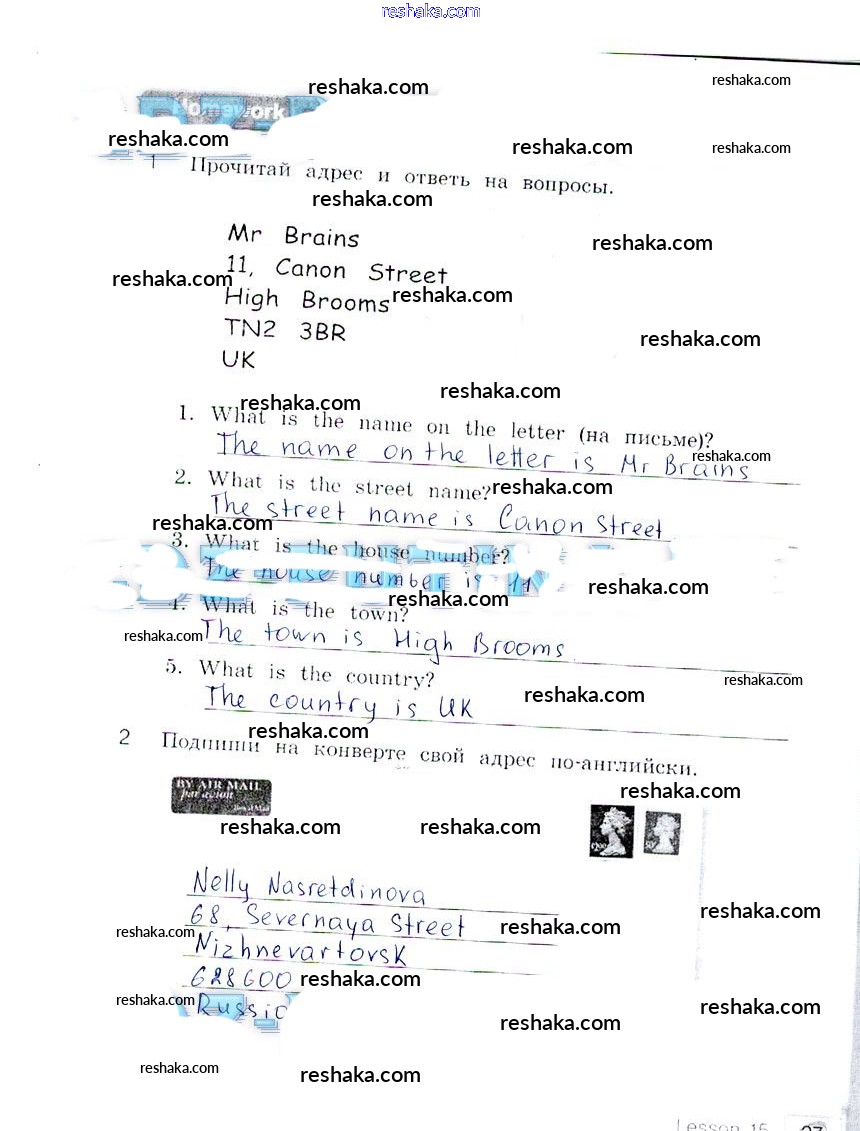 reshaka.com
reshaka.com
reshaka.com
Homework
reshaka.com
reshaka.com
reshaka.com
1 Прочитай адрес и ответь на вопросы.
reshaka.com
Mr Brains
reshaka.com
11, Canon Street
reshaka.com
High Brooms
reshaka.com
TN2 3BR
reshaka.com
UK
reshaka.com
reshaka.com
1. What is the name on the letter (на письме)?
The name on the letter is Mr Brains
reshaka.com
2. What is the street name?
reshaka.com
The street name is Canon Street
reshaka.com
3. What is the house number?
The house number is 11
reshaka.com
reshaka.com
4. What is the town?
The town is High Brooms
reshaka.com
5. What is the country?
reshaka.com
The country is UK
reshaka.com
reshaka.com
2 Подпиши на конверте свой адрес по-английски.
BY AIR MAIL
par avion
Royal Mail
reshaka.com
reshaka.com
reshaka.com
Nelly Nasretdinova
68, Severnaya Street
reshaka.com
reshaka.com
reshaka.com
Nizhnevartovsk
628600
reshaka.com
Russia
reshaka.com
reshaka.com
reshaka.com
reshaka.com
reshaka.com
Lesson 15